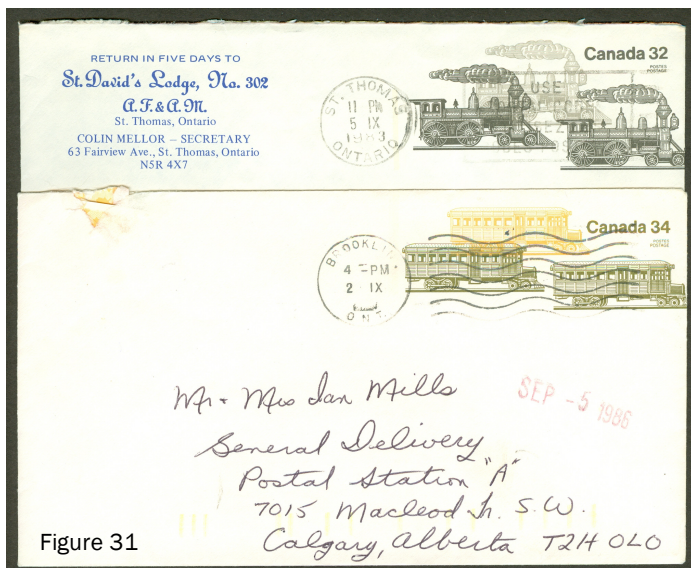 RETURN IN FIVE DAYS TO
St. David's Lodge, No. 302
A.F. & A.M.
St. Thomas, Ontario
COLIN MELLOR – SECRETARY
63 Fairview Ave., St. Thomas, Ontario
N5R 4X7
ST. THOMAS
11 PM
5 IX
1983
ONTARIO
Canada 32
POSTES
POSTAGE
USE
BROOKLIN
4 -PM
2 IX
ONT
Canada 34
POSTES
POSTAGE
SEP -5 1986
Mr + Mrs Ian Mills
General Delivery
Postal Station "A"
7015 Macleod Tr. S.W.
Calgary, Alberta T2H 0L0
Figure 31